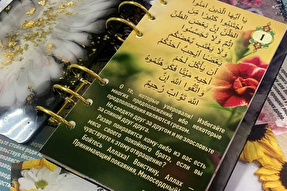 1
يَا أَيُّهَا الَّذِينَ آمَنُوا
اجْتَنِبُوا كَثِيرًا مِّنَ
الظَّنِّ إِنَّ بَعْضَ الظَّنِّ
إِثْمٌ وَلَا تَجَسَّسُوا
وَلَا يَغْتَب بَّعْضُكُم
بَعْضًا أَيُحِبُّ أَحَدُكُمْ
أَن يَأْكُلَ لَحْمَ
أَخِيهِ مَيْتًا فَكَرِهْتُمُوهُ
وَاتَّقُوا اللَّهَ إِنَّ
اللَّهَ تَوَّابٌ رَّحِيمٌ
О те, которые уверовали! Избегайте
многих предположений, ибо некоторые
предположения являются грехом.
Не следите друг за другом и не злословьте
за спиной друг друга.
Разве понравится кому-либо из вас есть
мясо своего покойного брата, если вы
чувствуете к этому отвращение?
Бойтесь Аллаха! Воистину, Аллах –
Принимающий покаяния, Милосердный.